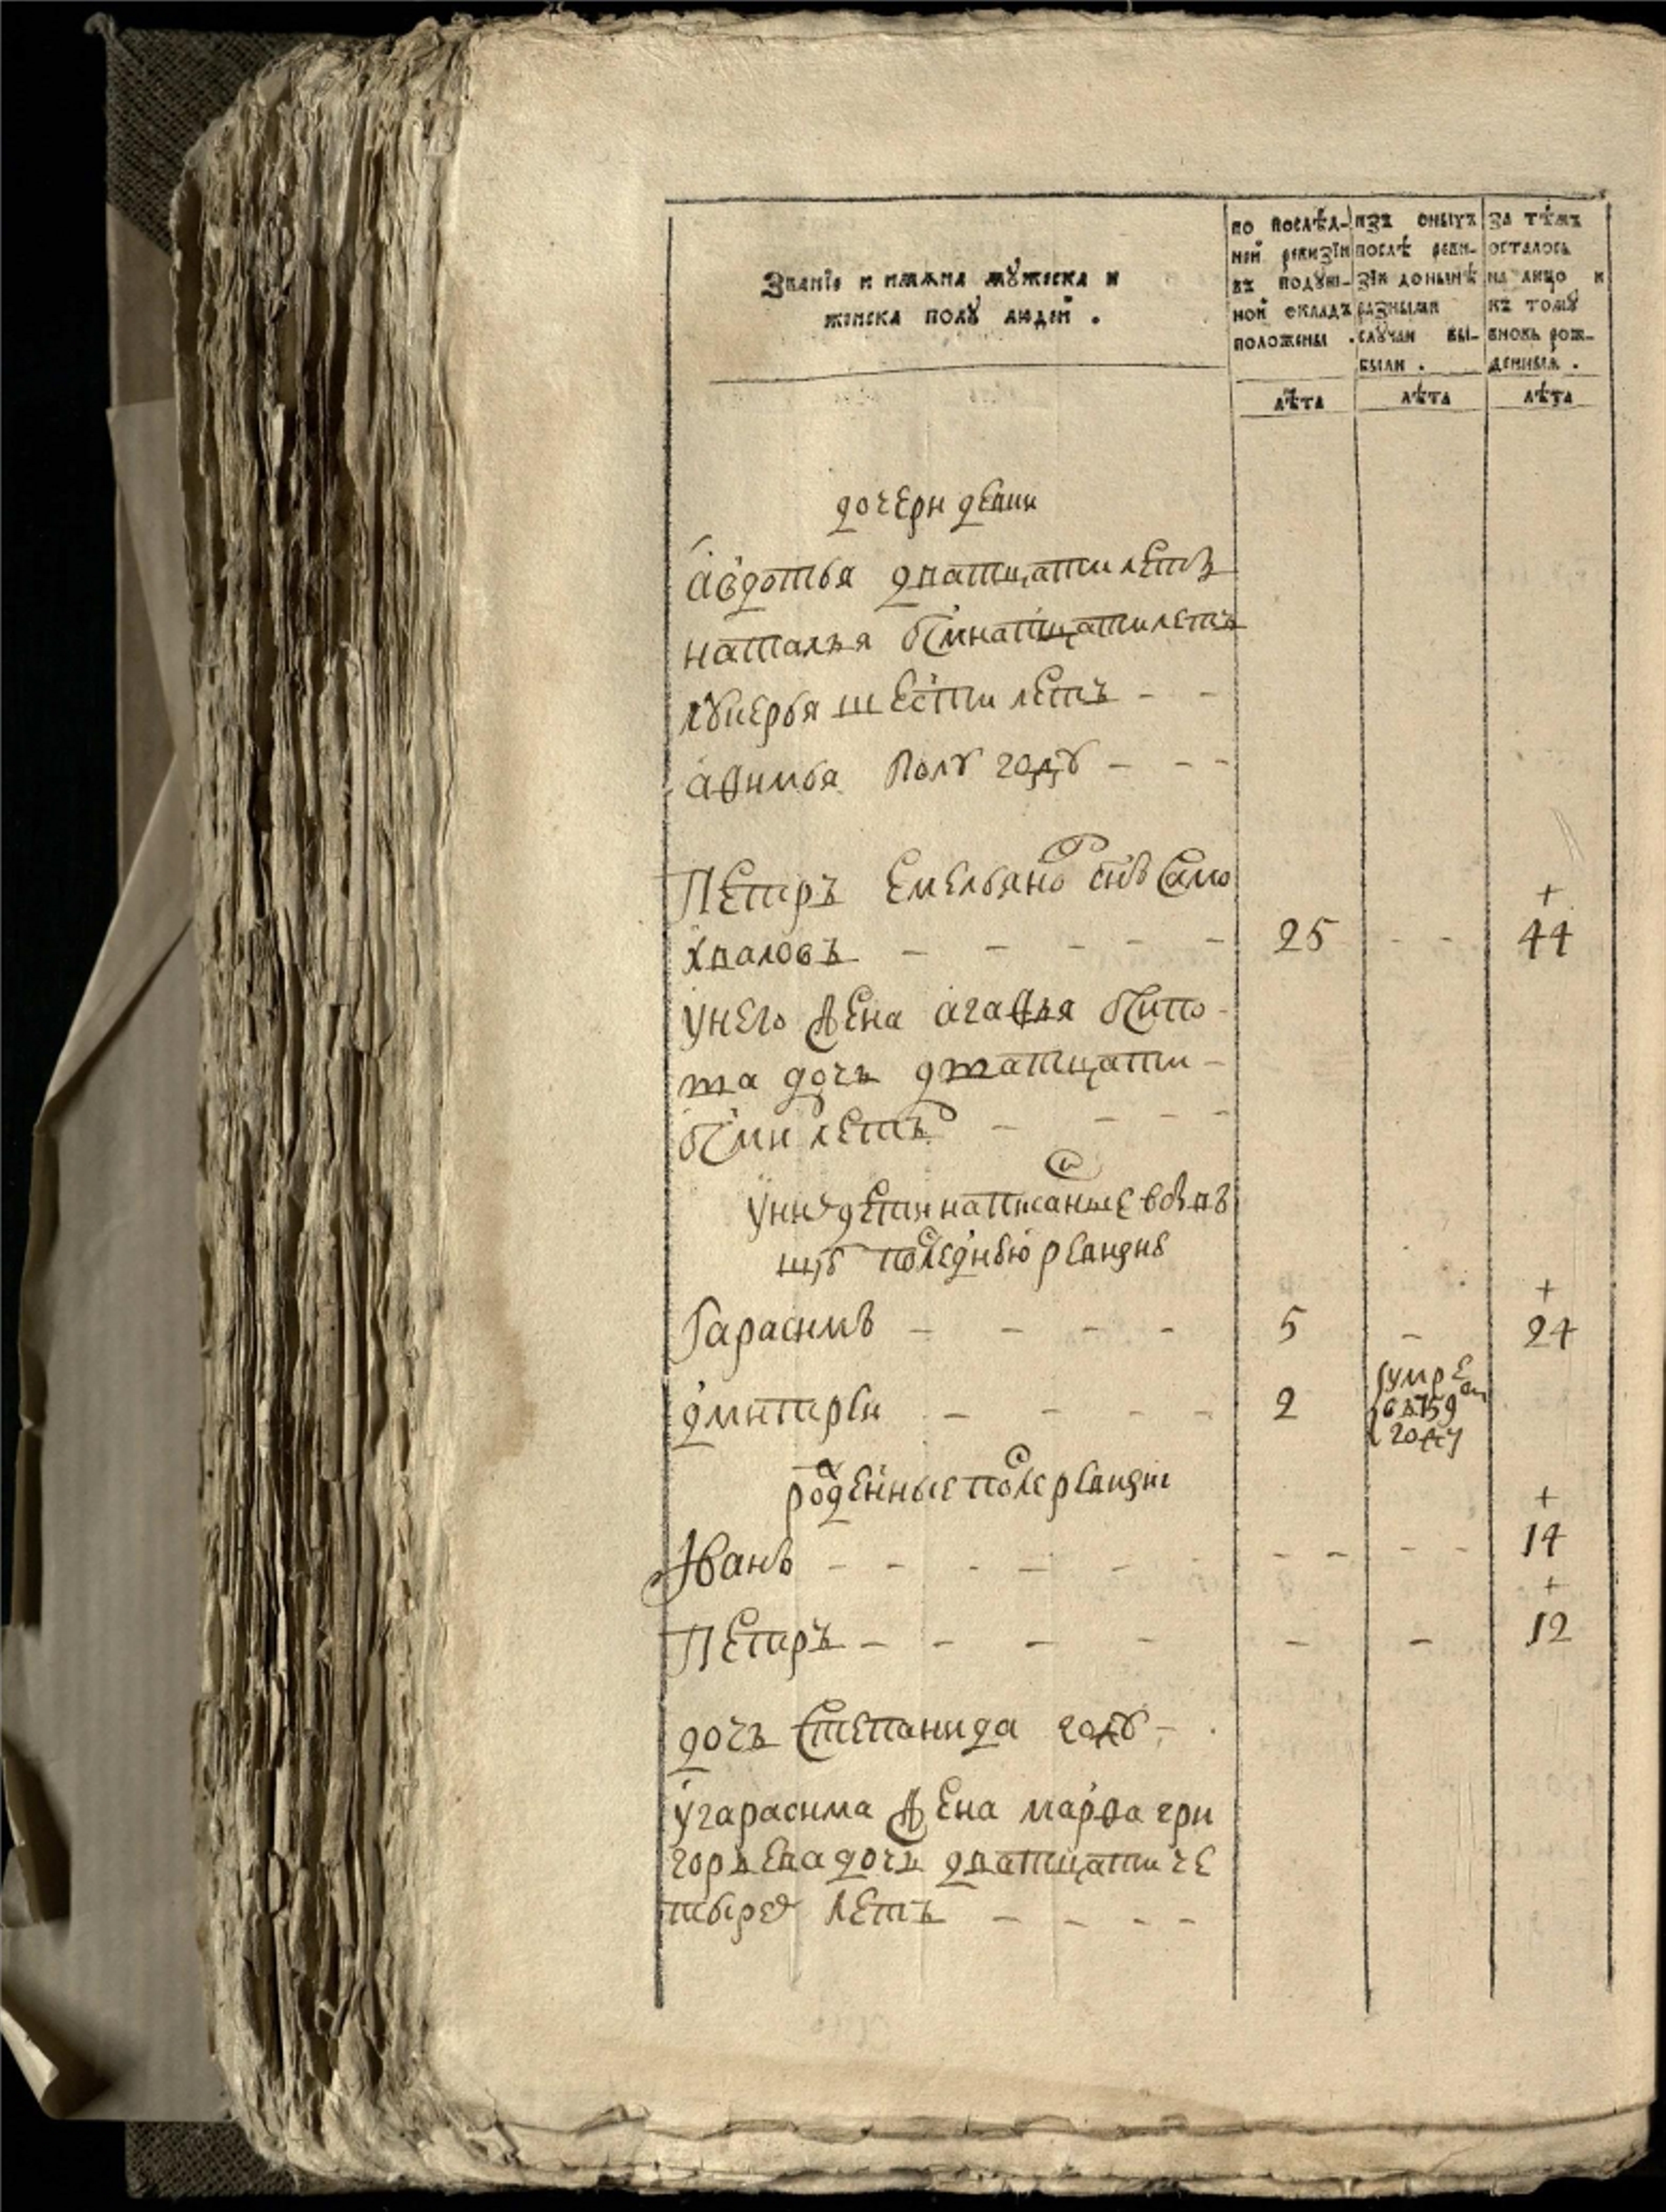 Званїе и имѧна мꙋжеска и
женска полꙋ людей .
по послѣд-
ней ревизїи
въ подꙋш-
ной окладъ
положены .
изъ оныхъ
послѣ реви-
зїи донынѣ
разными
слꙋчаи вы-
были .
за тѣмъ
осталось
на лицо и
къ томꙋ
вновь рож-
денныя .
лѣта
лѣта
лѣта
дочери девки
авдотья дватцати летъ
наталья осмнатцати летъ
лꙋкерья шести летъ - -
афимья полꙋ годꙋ - - -
Петръ Емельяновъ снъ Само
хваловъ - - - - - 25 - - + 44
унего жена агафья
та дочь дватцати -
осми летъ - - - -
уних дети написаные
последнюю ревизию
Гарасимъ - - - - 5 - + 24
дмитреи - - - - 2 умре
в 759м
годꙋ
роженные после ревизии
Иванъ - - - - - - - - - - + 14
Петръ - - - - - - + 12
дочь Степанида годꙋ -
у гарасима жена марфа гри
горьева дочь дватцати че
тырех летъ - - - -